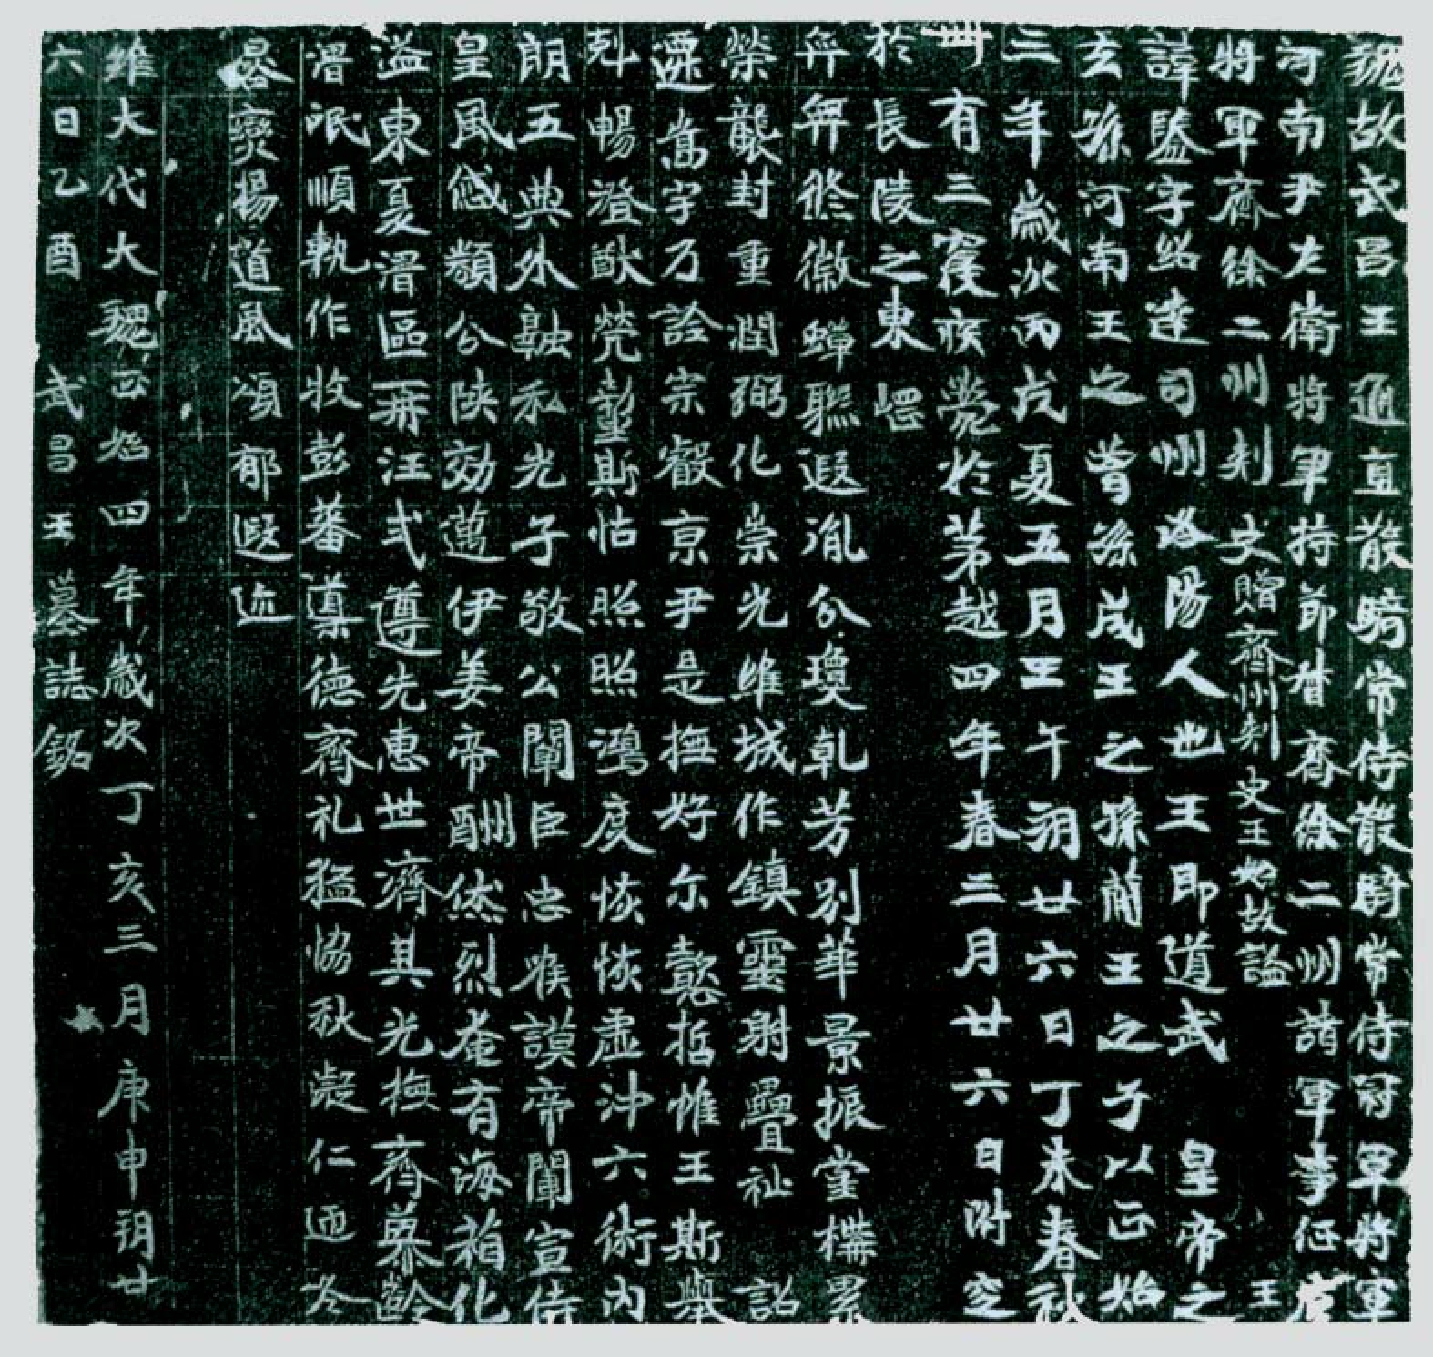 魏故武昌王通直散騎常侍散騎常侍冠軍將軍
河南尹左衛將軍持節督齊徐二州諸軍事征虜
將軍齊徐二州刺史贈齊州刺史王如故謚 王
諱鑒字紹達司州洛陽人也王即道武 皇帝之
玄孫河南王之曾孫成王之孫簡王之子以正始
三年歲次丙戌夏五月壬午朔廿六日丁未春秋
卌有三寢疾薨於第越四年春三月廿六日附窆
於長陵之東崗
弈弈緜徽蟬聯遐胤分瓊乾芳別華景振堂構累
榮襲封重潤弼化崇光維城作鎮靈射疊祉 詔
遷嵩宇乃詮宗叡京尹是撫好尔懿哲惟王斯舉
剋暢澄猷煢煢斯怙照照鴻度恢恢虛沖六術內
朗五典外融私光子敬公闡臣忠猴謨帝闈宣侍
皇風愆纇公陝効邁伊姜帝酬然烈奄有海葙化
溢東夏湣區再汪式遵先惠世濟其光撫齊慕齡
湣氓順軌作牧彭蕃導德齊礼猛協秋凝仁迊冬
晷爕揚道風頌郁遐迹
維大代大魏正始四年歲次丁亥三月庚申朔廿
六日乙酉 武昌王墓誌銘